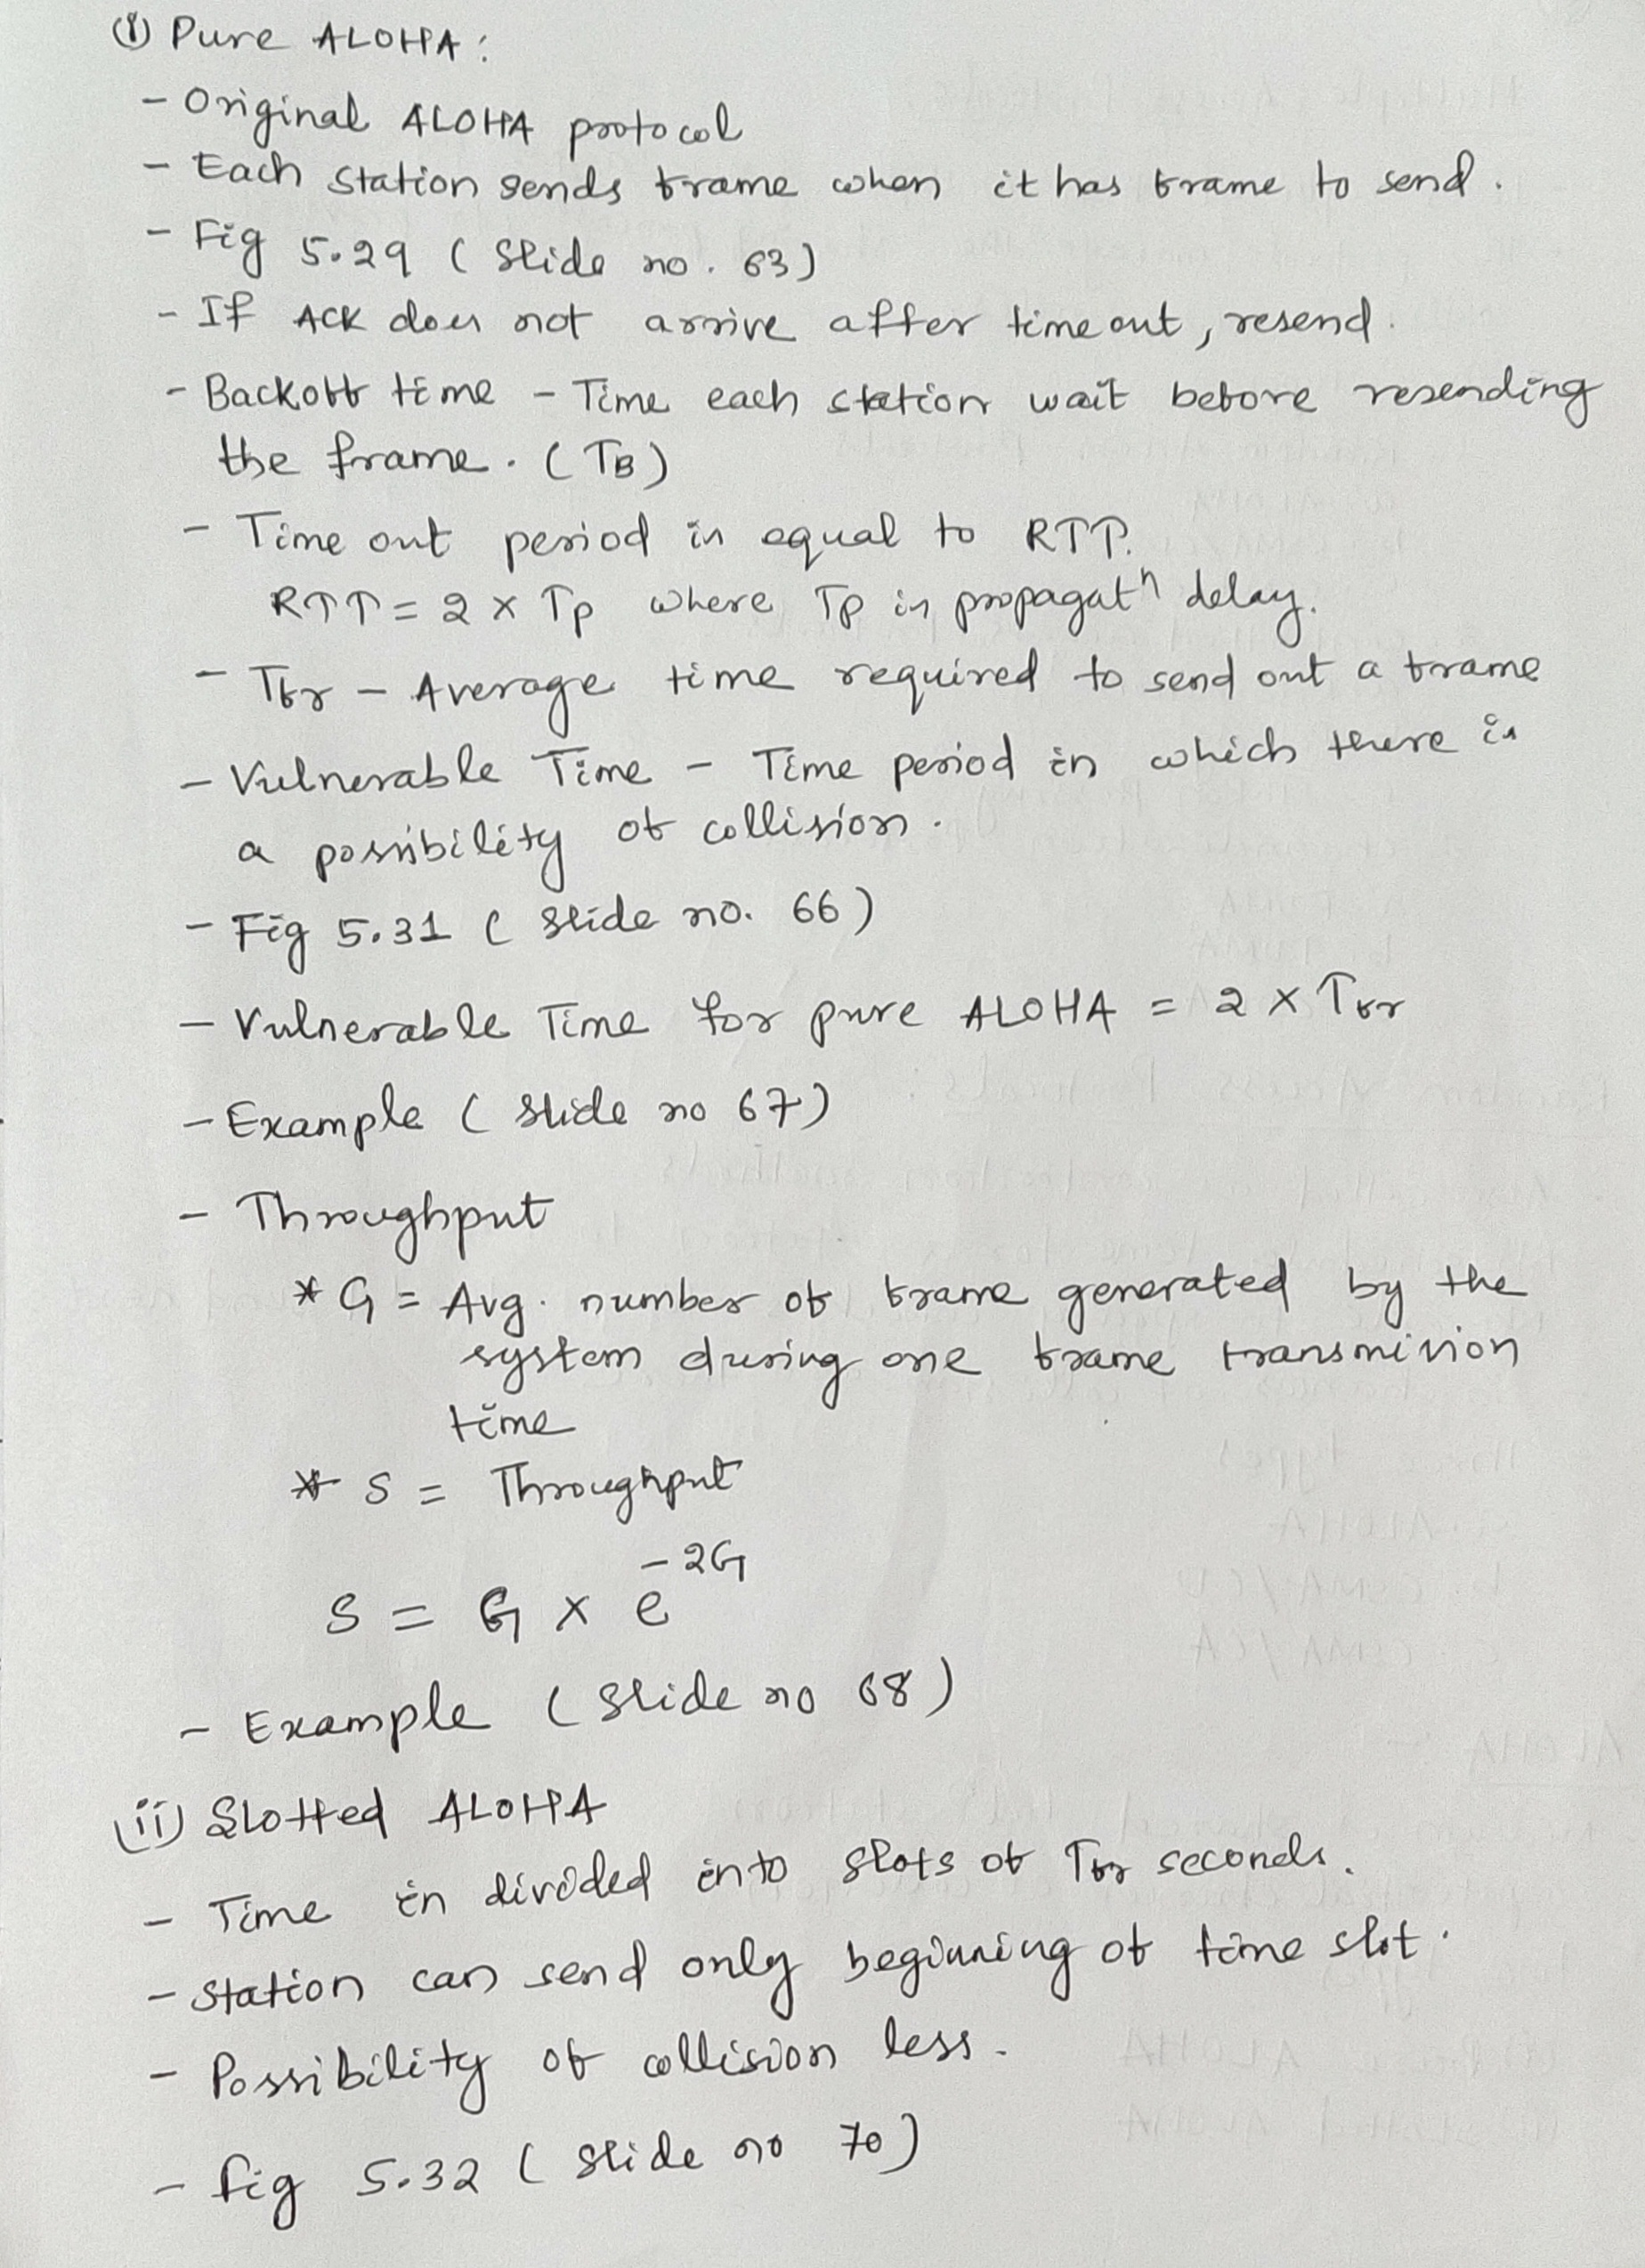 (i) Pure ALOHA:
- Original ALOHA protocol
- Each station sends frame when it has frame to send.
- Fig 5.29 (Slide no. 63)
- If ACK does not arrive after time out, resend.
- Backoff time - Time each station wait before resending
the frame. (TB)
- Time out period is equal to RTT.
RTT = 2 x Tp where Tp is propagatⁿ delay.
- Tfr - Average time required to send out a frame
- Vulnerable Time - Time period in which there is
a possibility of collision.
- Fig 5.31 (Slide no. 66)
- Vulnerable Time for pure ALOHA = 2 x Tfr
- Example (Slide no 67)
- Throughput
* G = Avg. number of frame generated by the
system during one frame transmission
time
* S = Throughput
S = G x e^-2G
- Example (Slide no 68)
(ii) Slotted ALOHA
- Time in divided into slots of Tfr seconds.
- Station can send only beginning of time slot.
- Possibility of collision less.
- fig 5.32 (Slide no 70)